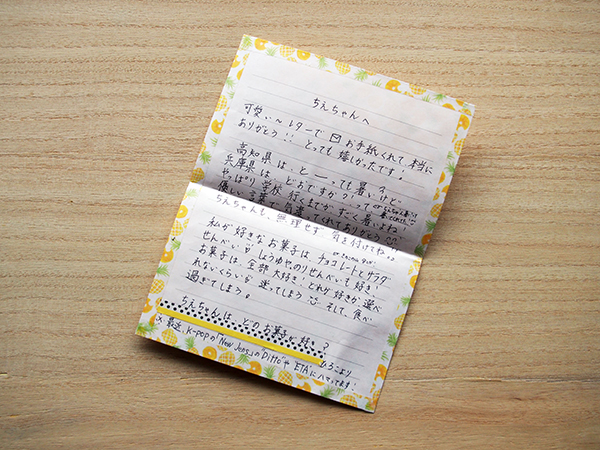 ちえちゃんへ
可愛い〜レターで お手紙くれて 本当に
ありがとう!! とっても嬉しかったです!
高知県は、とーっても暑
兵庫県は、どおですか?って
やっぱり学校行くまでが すごく暑いよね
優しい言葉で気遣ってくれてありがとう
ちえちゃんも、無理せず 気を付けてね
私が好きなお菓子は、チョコレートとサラダ
せんべい しょうゆやのりせんべいも好き!
お菓子は、全部大好き!どれが好きか選べ
れないくらい 迷ってしまう そして、食べ
過ぎてしまう。
ちえちゃんは、どのお菓子が好き?
ひろこより
※最近、K-POPの「New Jens」の"Ditto"や"ETA"にハマってます!